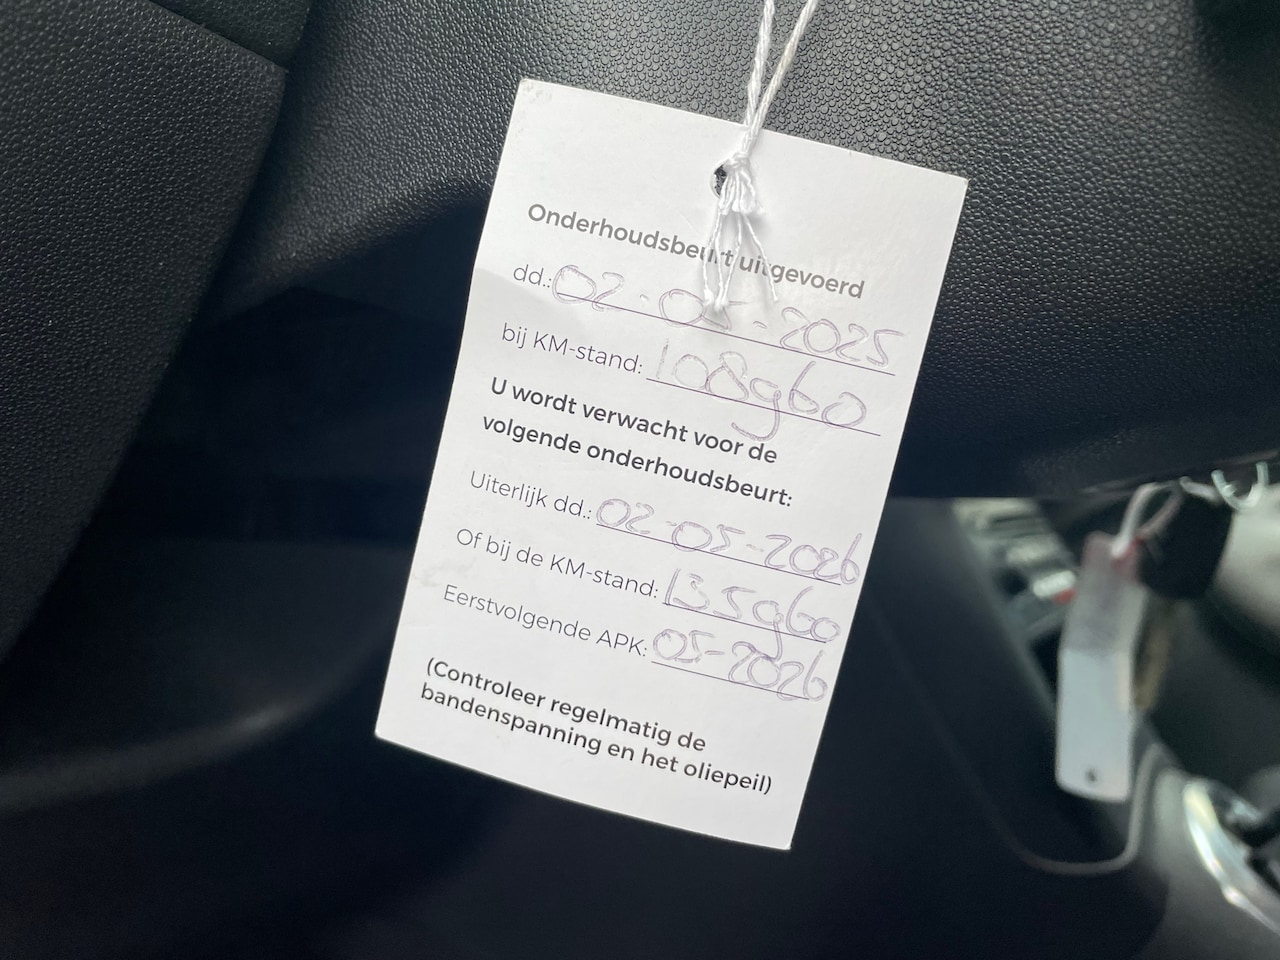 Onderhoudsbeurt uitgevoerd
dd.: 02-05-2025
bij KM-stand: 108960
U wordt verwacht voor de
volgende onderhoudsbeurt:
Uiterlijk dd.: 02-05-2026
Of bij de KM-stand: 135960
Eerstvolgende APK: 05-2026
(Controleer regelmatig de
bandenspanning en het oliepeil)